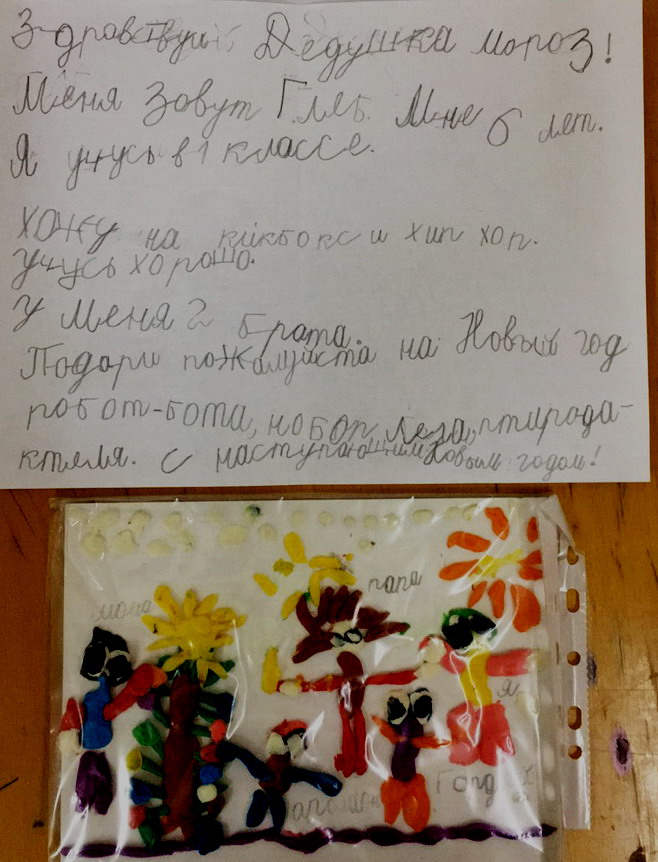 Здравствуй Дедушка мороз!
Меня Зовут Глеб. Мне 6 лет.
Я учусь в 1 классе.
хожу на кикбокс и хип хоп.
учусь хорошо.
У меня 2 брата.
Подари пожалуйста на Новый год
робот-бота, нобор Лега, птирода-
ктеля. с наступающим Новым годом!
папа
мама
я